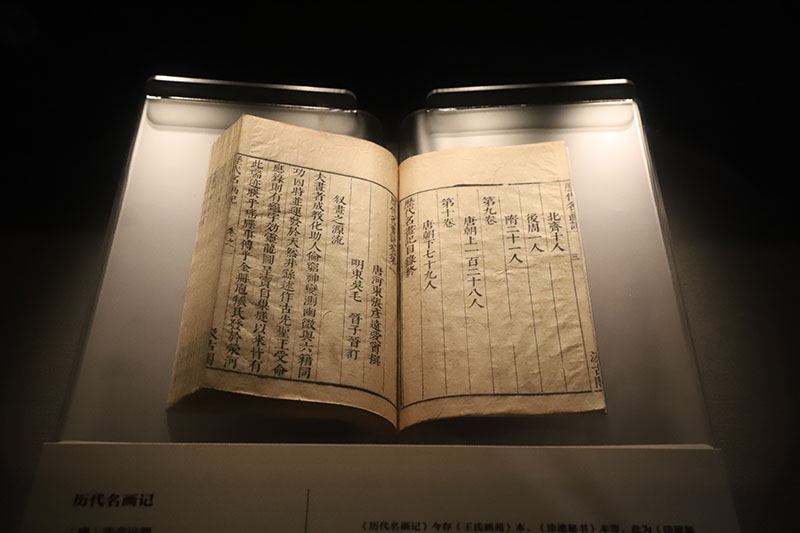 歷代名畫記 三 汲古閣
北齊十人
後周一人
隋二十一人
第九卷
唐朝上一百二十八人
第十卷
唐朝下七十九人
歷代名畫記目錄終
唐河東張彥遠愛賓撰
明東吳毛 晉子晉訂
叙畫之源流
夫畫者成教化助人倫窮神變測幽微與六籍同
功四時並運發於天然非繇述作古先聖王受命
應籙則有龜字効靈龍圖呈寶自巢燧以來皆有
此瑞迹映乎瑤牒事傳乎金冊庖犧氏發於滎河
歷代名畫記 卷之一 汲古閣
历代名画记
《历代名画记》今存《王氏画苑》本、《津逮秘书》本等，此为《津逮秘